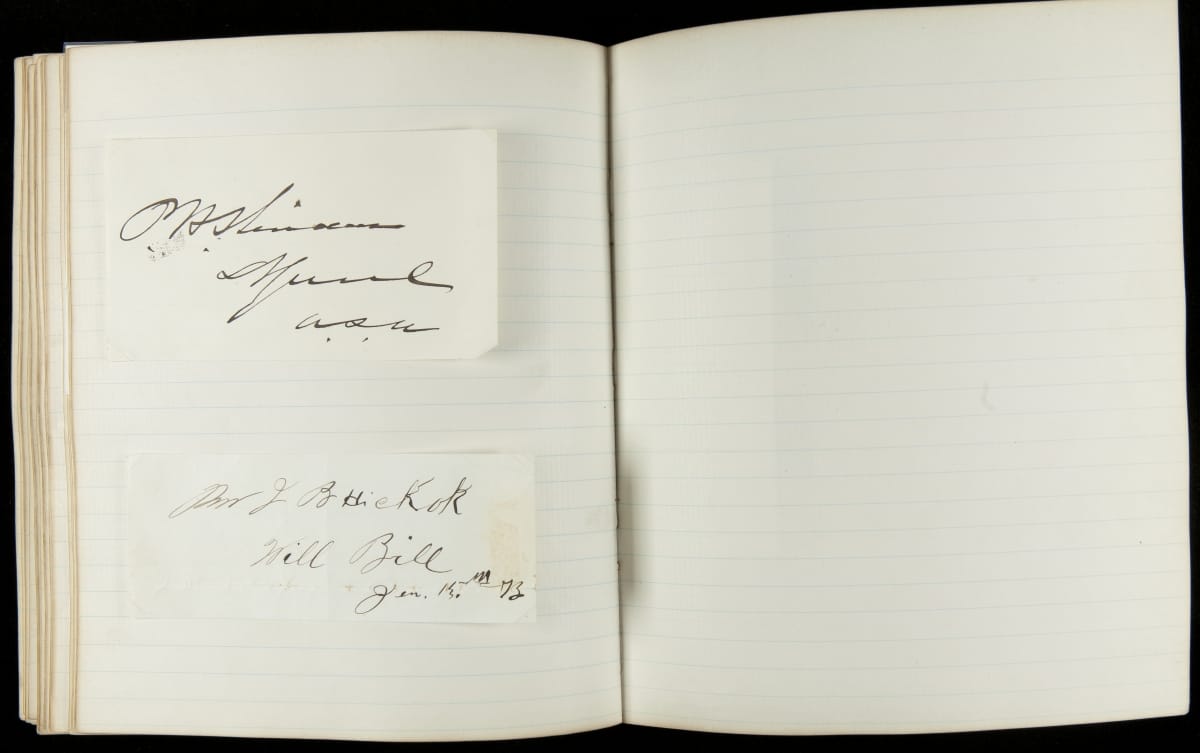 P H Sheridan
Lt Genl
U.S.A
J B Hickok
Will Bill
Jen. 15. 73